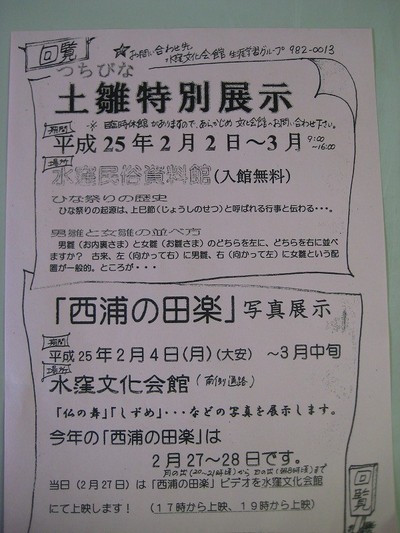 回覧
★お問い合わせ先
水窪文化会館 生涯学習グループ 982-0013
つちびな
土雛特別展示
※臨時休館がありますので、あらかじめ文化会館へお問い合わせ下さい。
期間
平成25年2月2日~3月 9:00~16:00
場所
水窪民俗資料館(入館無料)
ひな祭りの歴史
ひな祭りの起源は、上巳節(じょうしのせつ)と呼ばれる行事と伝わる・・・。
男雛と女雛の並べ方
男雛(お内裏さま)と女雛(お雛さま)のどちらを左に、どちらを右に並べ
ますか? 古来、左(向かって右)に男雛、右(向かって左)に女雛という配
置が一般的。ところが・・・
「西浦の田楽」写真展示
期間
平成25年2月4日(月)(大安) ~3月中旬
場所
水窪文化会館(南側通路)
「仏の舞」「しずめ」・・・などの写真を展示します。
今年の「西浦の田楽」は
2月27~28日です。
当日(2月27日)は「西浦の田楽」ビデオを水窪文化会館
にて上映します! (17時から上映、19時から上映)
回覧